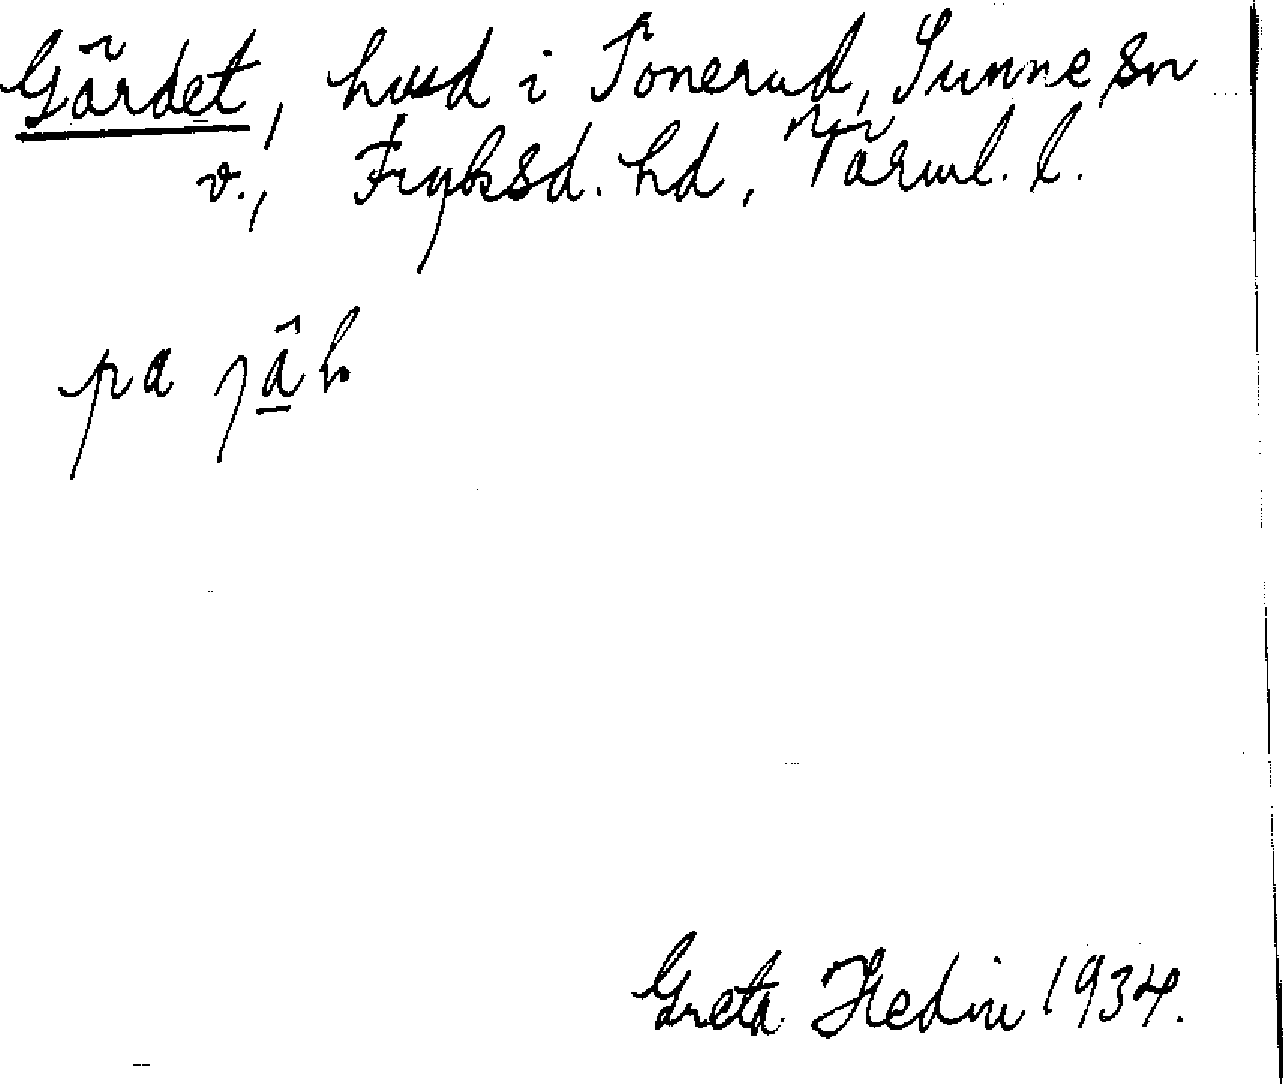 Gärdet, husd i Tonerud, Sunne sn
v., Fryksd. hd, Värml. l.
pa
Greta Hedin 1934.